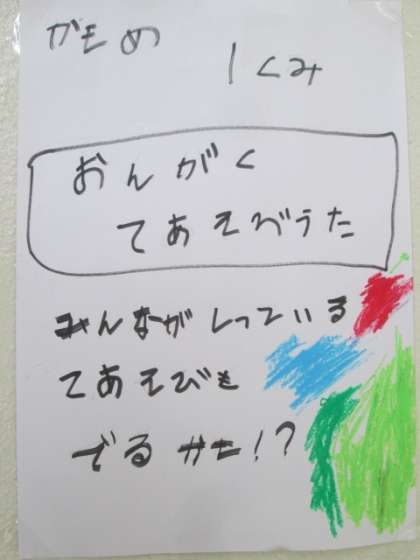 かもめ
1くみ
おんがく
てあそびうた
みんながしっている
てあそびも
でるかも!?